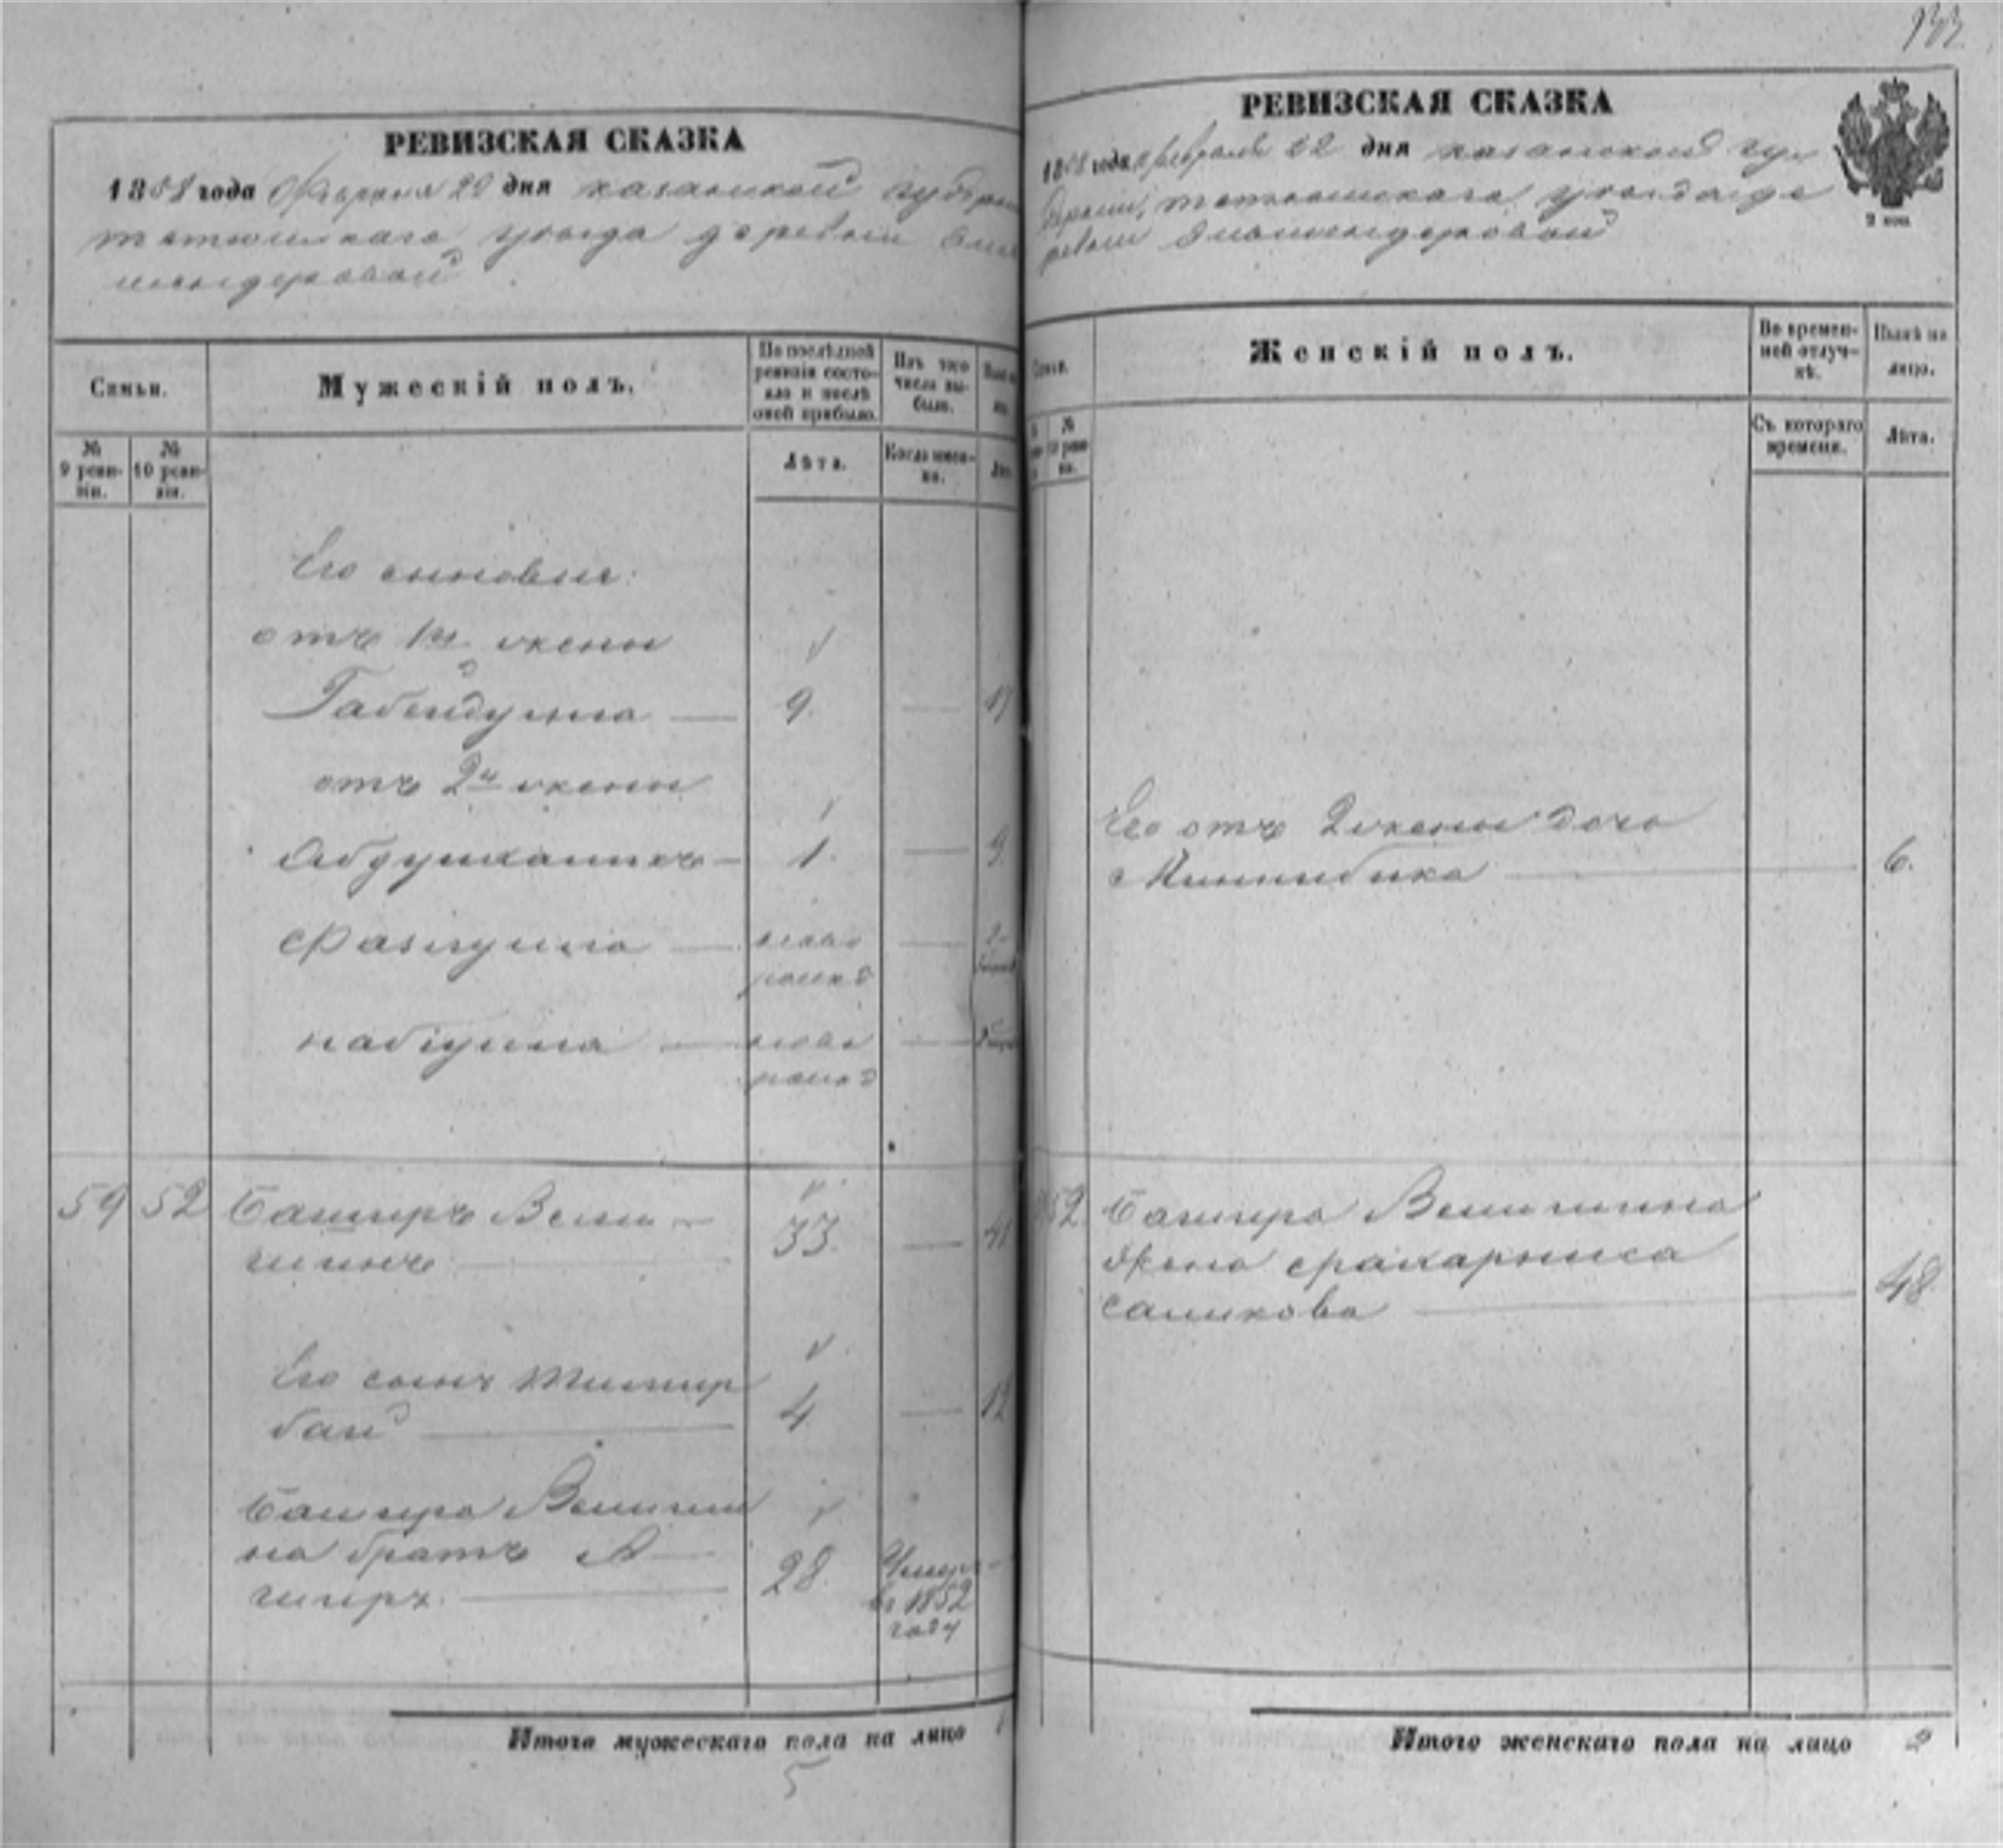 РЕВИЗСКАЯ СКАЗКА
1858 года Февраля 22 дня казанской губерн
тетюшскаго уезда деревни
Семьи.
Мужескій полъ.
По послѣдней ревизіи состо-
яло и послѣ
оной прибыло.
Изъ того
числа вы-
было.
№
9 реви-
зіи.
№
10 реви-
зіи.
Лѣта.
Когда имен-
но.
Его сыновья:
отъ 1й жены
Габейдулла — 9. —
отъ 2й жены
Абдулкаликъ — 1. — 9
Фазлулла — ново
рожд
Набіулла — ново
рожд
59 52 Баширъ Вели- 33. — 41
шинъ
Его сынъ Тимир
бай 4. — 12
Башира Велиши
на братъ А- 28. Умеръ
ширъ. въ 1852
году
Итого мужескаго пола на лицо
5
РЕВИЗСКАЯ СКАЗКА
1858 года февраля 22 дня казанской гу-
берніи, тетюшскаго уезда де
ревни
2 коп.
Женскій полъ.
Во времен-
ной отлуч-
кѣ.
Нынѣ на
лицо.
№
10 реви-
зіи.
Съ котораго
времени.
Лѣта.
Его отъ 2 жены дочь
Миннибика 6.
52. Башира Велишина
жена Фахарниса
Саликова 48
Итого женскаго пола на лицо 2